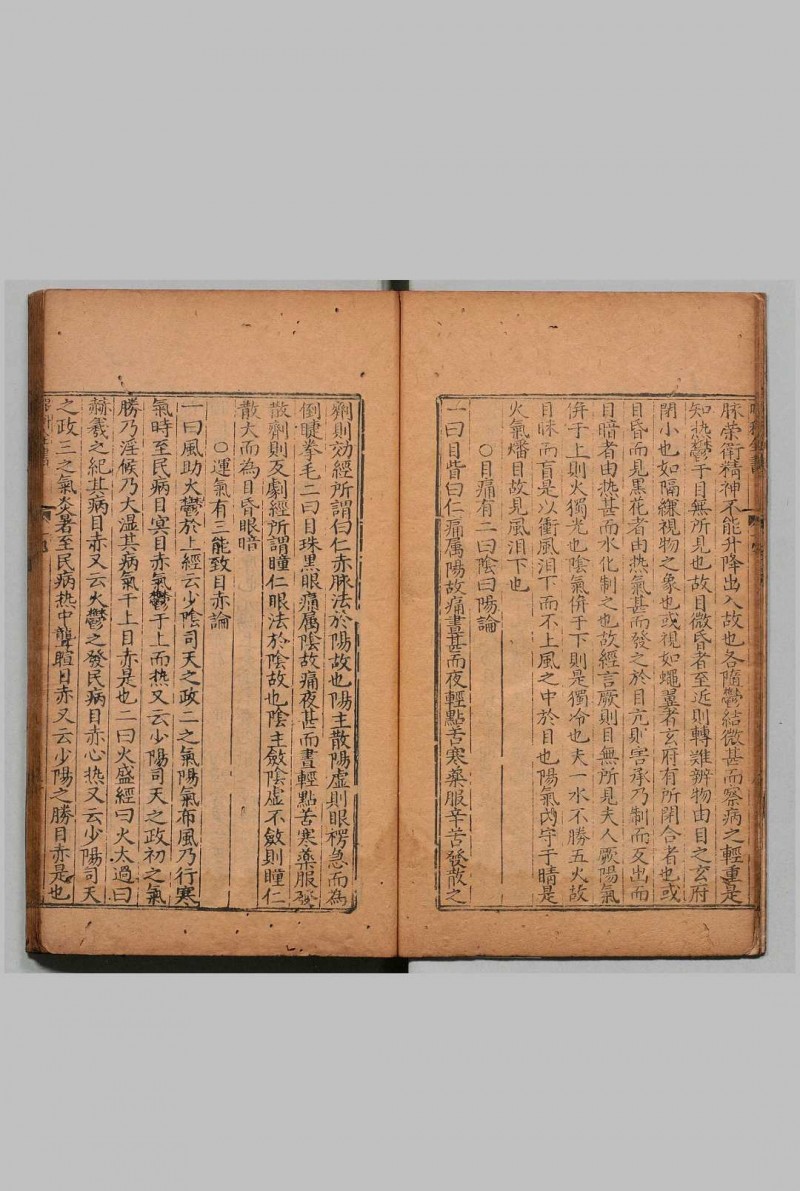 脉榮衛精神不能升降出入故也各隨鬱結微甚而察病之輕重是
知热鬱于目無所見也故目微昏者至近則轉難辨物由目之玄府
閉小也如隔縑視物之象也或視如蠅翼者玄府有所閉合者也或
目昏而見黒花者由热氣甚而發之於目亢則害承乃制而反出而
目暗者由热甚而水化制之也故經言厥則目無所見夫人厥陽氣
併于上則火獨光也陰氣併于下則是獨冷也夫一水不勝五火故
目昧而盲是以衝風泪下而不上風之中於目也陽氣内守于睛是
火氣燔目故見風泪下也
○目痛有二曰陰曰陽論
一曰目眥白仁痛属陽故痛晝甚而夜輕點苦寒藥服辛苦發散之
劑則効經所謂白仁赤脉法於陽故也陽主散陽虚則眼楞急而為
倒睫拳毛二曰目珠黒眼痛属陰故痛夜甚而晝輕點苦寒藥服發
散劑則反劇經所謂瞳仁眼法於陰故也陰主斂陰虚不斂則瞳仁
散大而為目昏眼暗
○運氣有三能致目赤論
一曰風助火鬱於上經云少陰司天之政二之氣陽氣布風乃行寒
氣時至民病目㝠目赤氣鬱于上而热又云少陽司天之政初之氣
勝乃淫候乃大湿其病氣干上目赤是也二曰火盛經曰火太過曰
赫羲之紀其病目赤又云火鬱之發民病目赤心热又云少陽司天
之政三之氣炎暑至民病热中聾暄目赤又云少陽之勝目赤是也